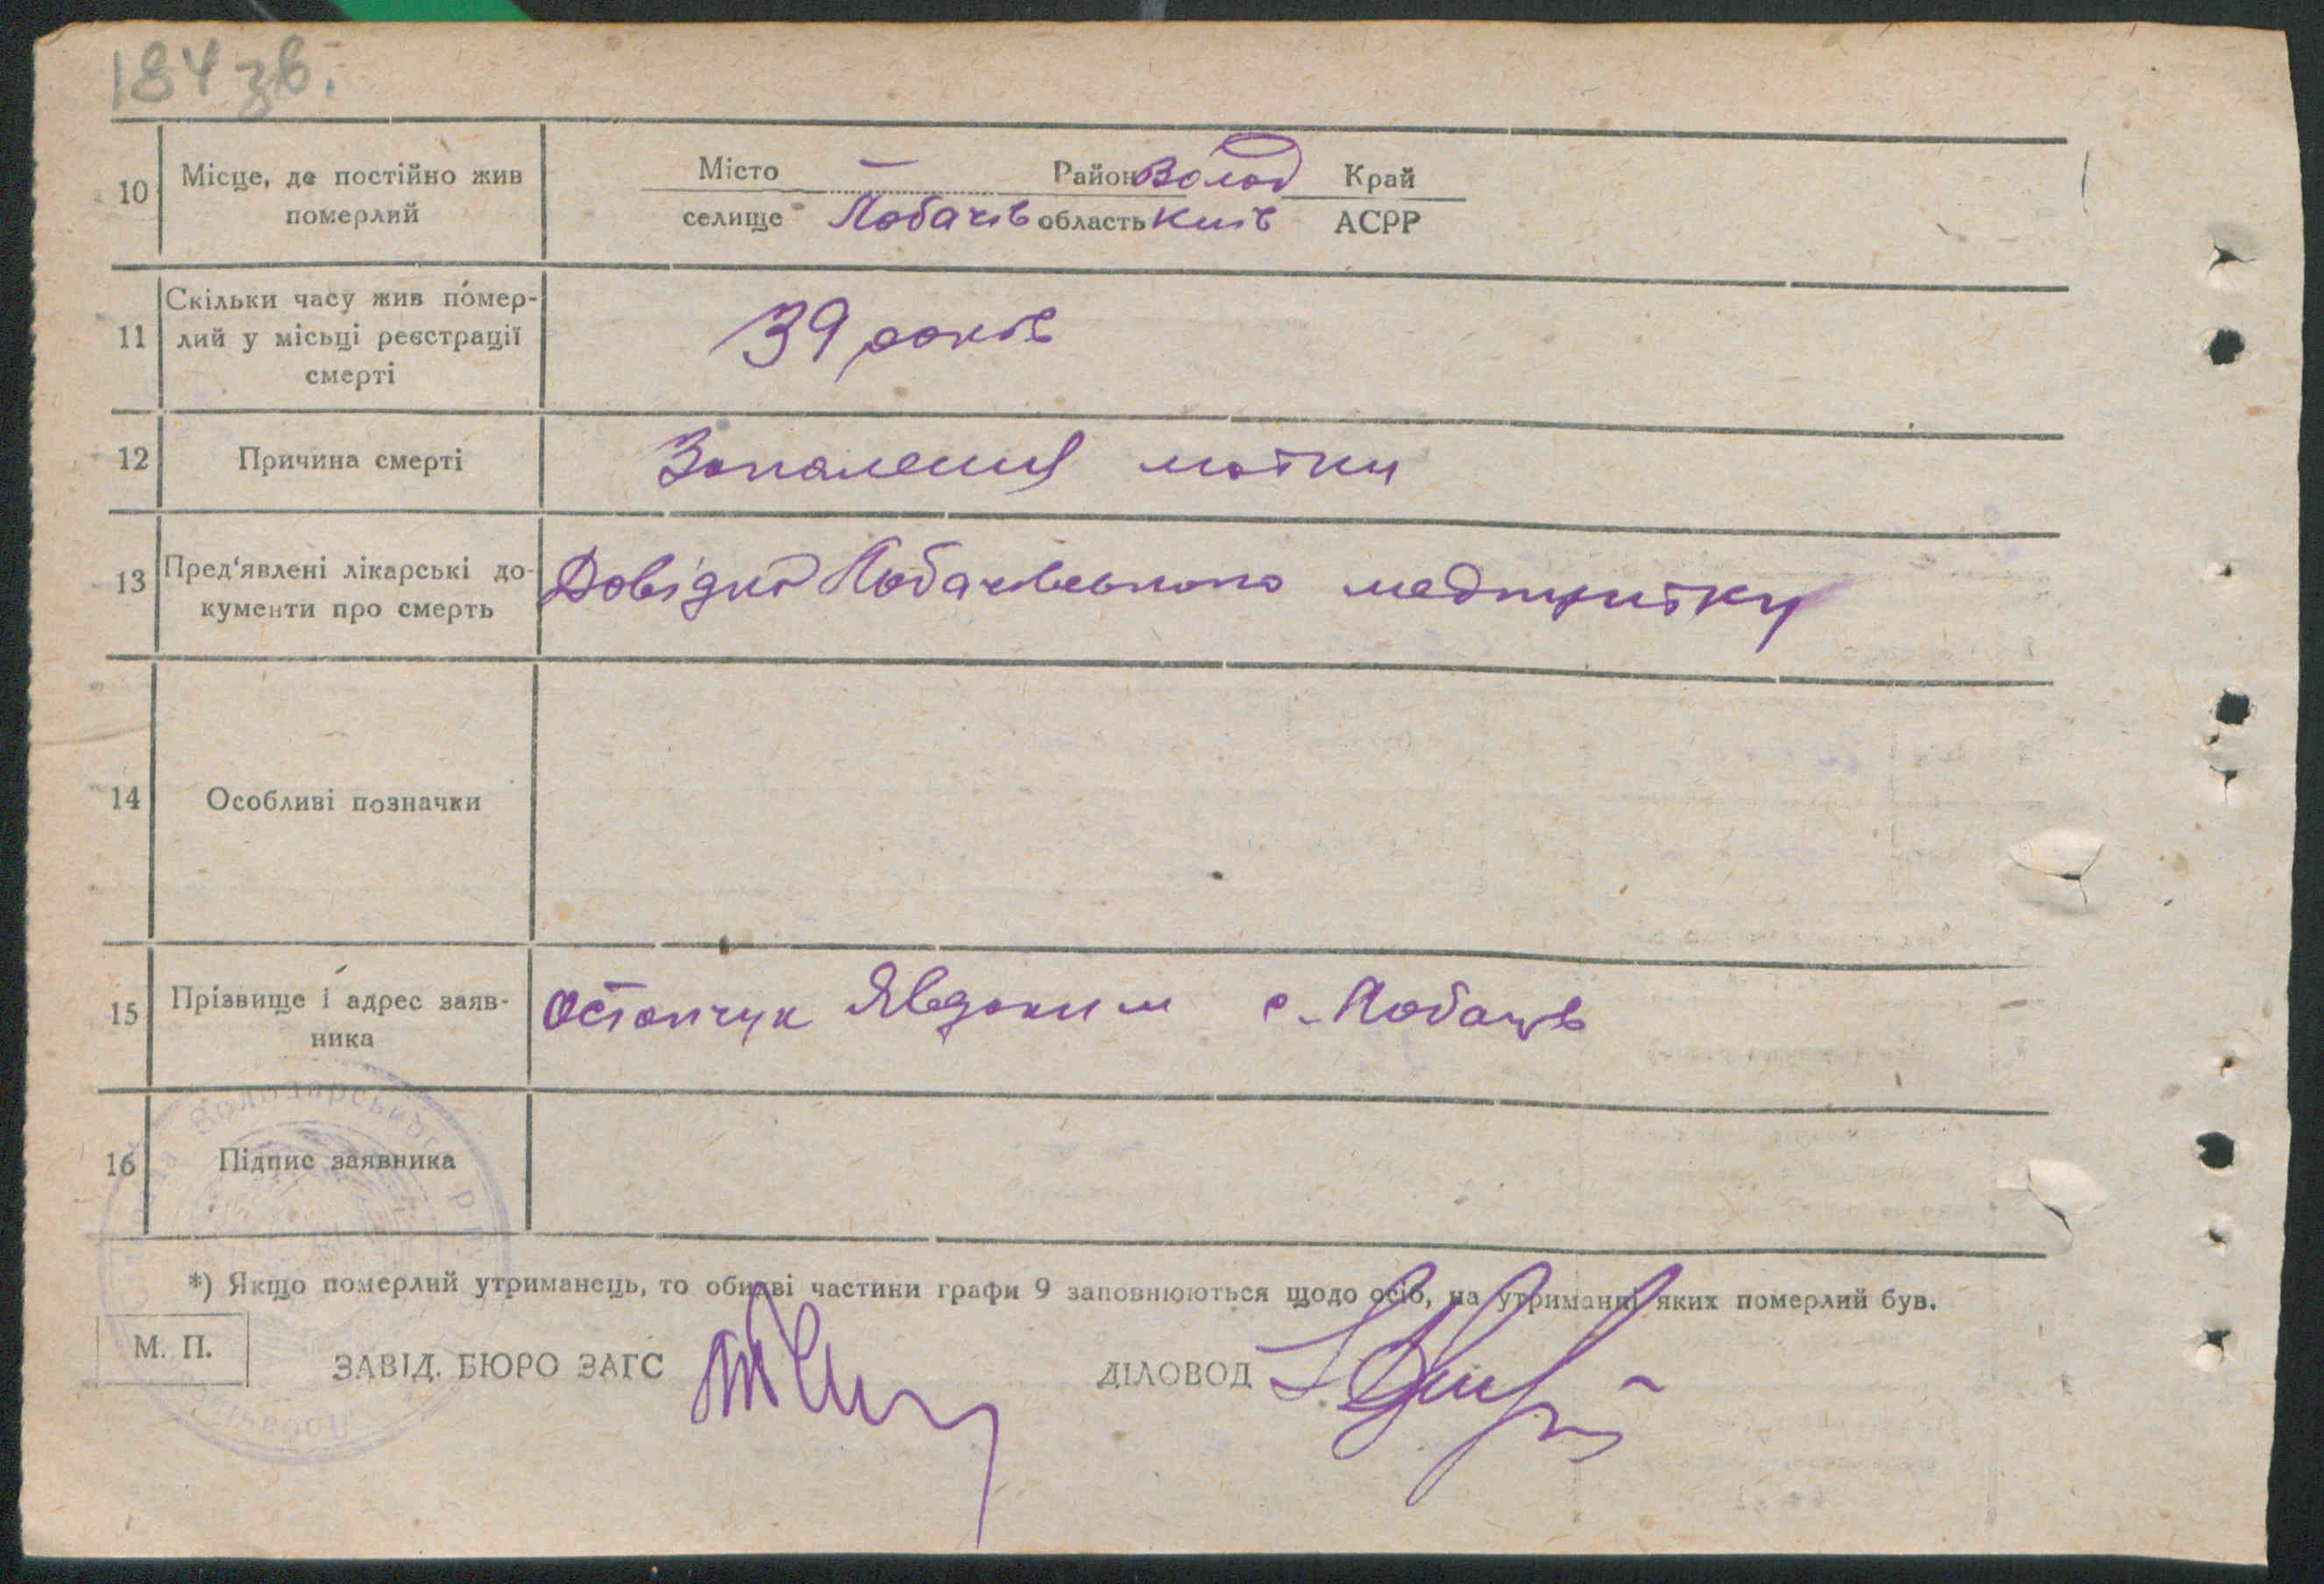 184 зв.
10 Місце, де постійно жив померлий
Місто — Район Волод Край
селище Лобачів область Київ АСРР
11 Скільки часу жив помер-
лий у місьці реєстрації
смерті
39 років
12 Причина смерті
Запалення матки
13 Пред'явлені лікарські до-
кументи про смерть
Довідка Лобачівського медпункту
14 Особливі позначки
15 Прізвище і адрес заяв-
ника
Остапчук Явдоким с. Лобачів
16 Підпис заявника
*) Якщо померлий утриманець, то обидві частини графи 9 заповнюються щодо осіб, на утриманні яких померлий був.
М. П.
ЗАВІД. БЮРО ЗАГС
ДІЛОВОД